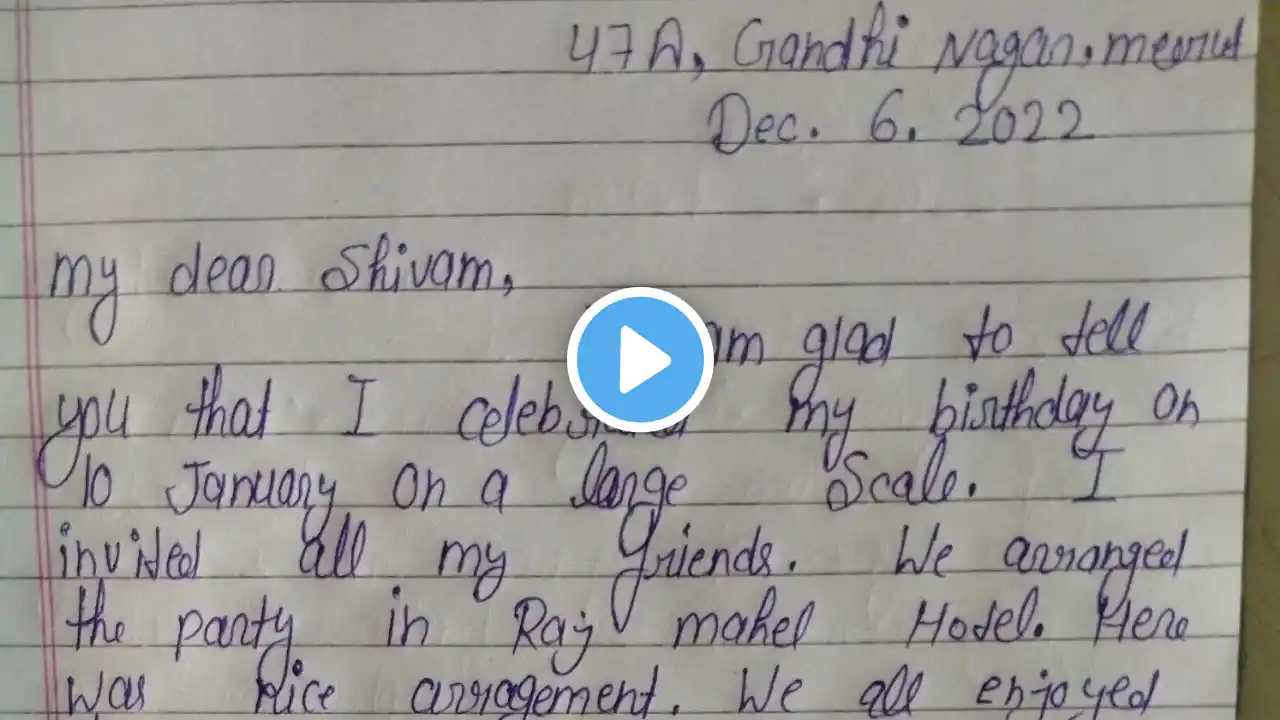 47A, Gandhi Nagar, meerut
Dec. 6. 2022
my dear Shivam,
am glad to tell
you that I celebrated my birthday on
10 January on a large Scale. I
invited all my friends. We arranged
the party in Raj mahel Hotel. Here
was Nice arragement. We all enjoyed